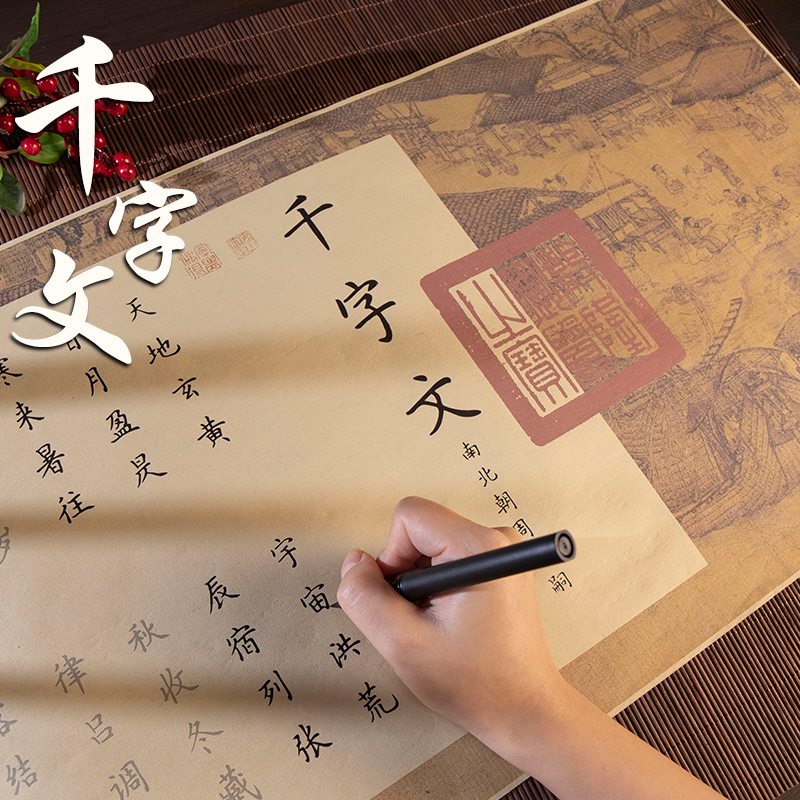 千字文
千字文
南北朝周
嗣
天地玄黄
宇宙洪荒
月盈昃
辰宿列张
寒来暑往
秋收冬藏
律吕调
结
乾隆
御覽
之寶